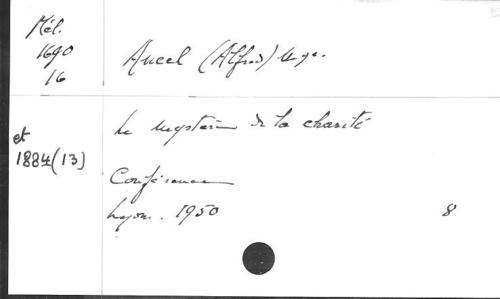 Mél.
1690
16
Ancel (Alfred) Mgr.
et
1884(13)
Le mystère de la charité
Conférence
Lyon. 1950
8